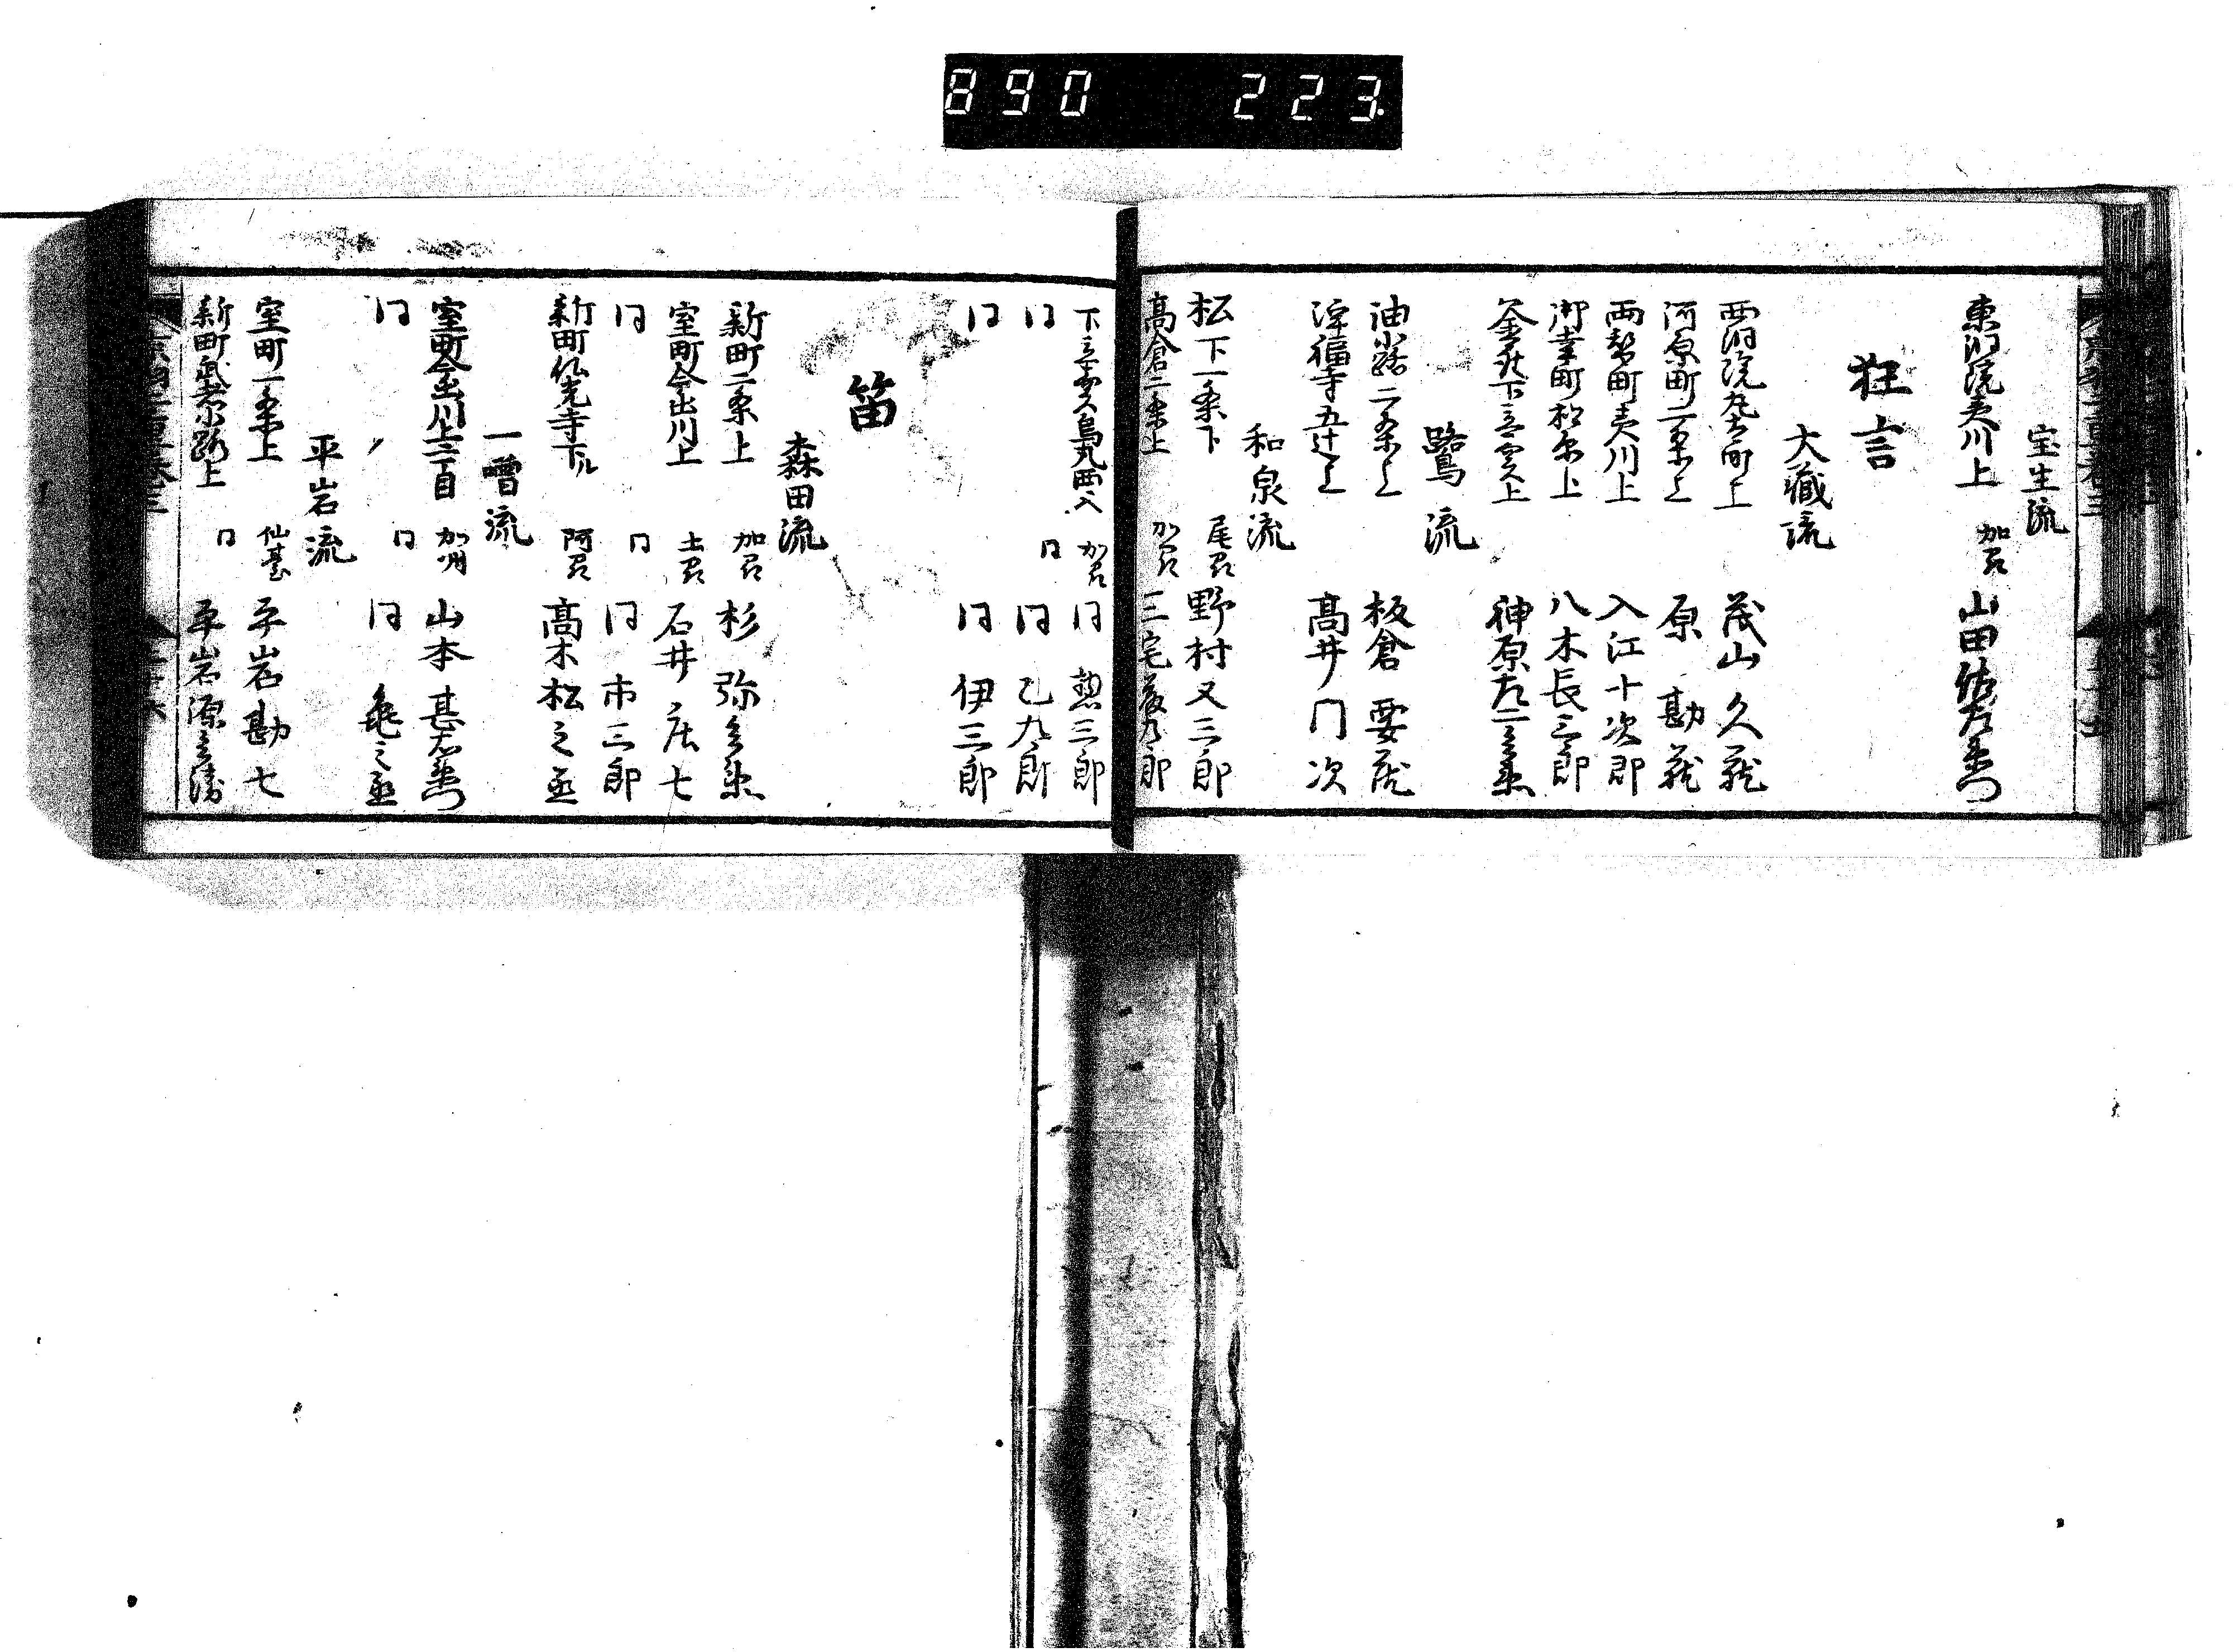 890 223
宝生流
東洞院夷川上 加州 山田佐左衛門
狂言
大蔵流
西洞院丸太町上 茂山久蔵
河原町二条上 原勘蔵
両替町夷川上 入江十次郎
御幸町松原上 八木長三郎
釜座下立売上 神原九二兵衛
鷺流
油小路二条上 板倉要蔵
浄福寺五辻上 高井門次
和泉流
松下一条下 尾州 野村又三郎
高倉二条上 加州 三宅藤九郎
下立売烏丸西入 加州 同惣三郎
同 同 同乙九郎
同 同伊三郎
笛
森田流
新町二条上 加州 杉弥兵衛
室町今出川上 土州 石井庄七
同 同 同市三郎
新町仏光寺下ル 阿州 高木松之丞
一曽流
室町今出川上二丁目 加州 山本甚右衛門
同 同 同亀之丞
平岩流
室町一条上 仙台 平岩勘七
新町武者小路上 同 平岩源兵衛